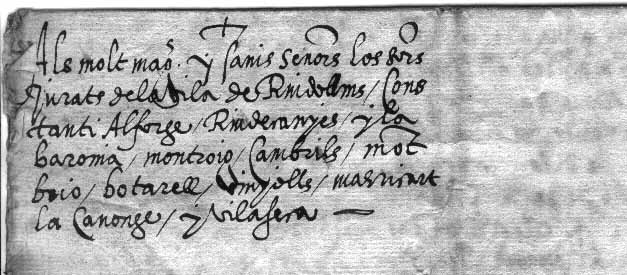 Als molt magcs. y savis señors los sors
Jurats de la Vila de Riudollms / Cons
tanti Alforge / Riudecanyes / y la
baronia / montroio / Cambrils / mōt
brio / botarell / Vinyolls / masricart
la Canonge / y vilaseca —